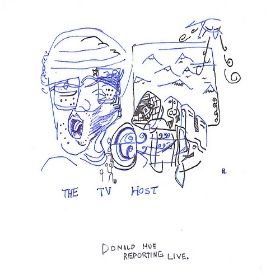 THE TV HOST
DONALD HUE
REPORTING LIVE.